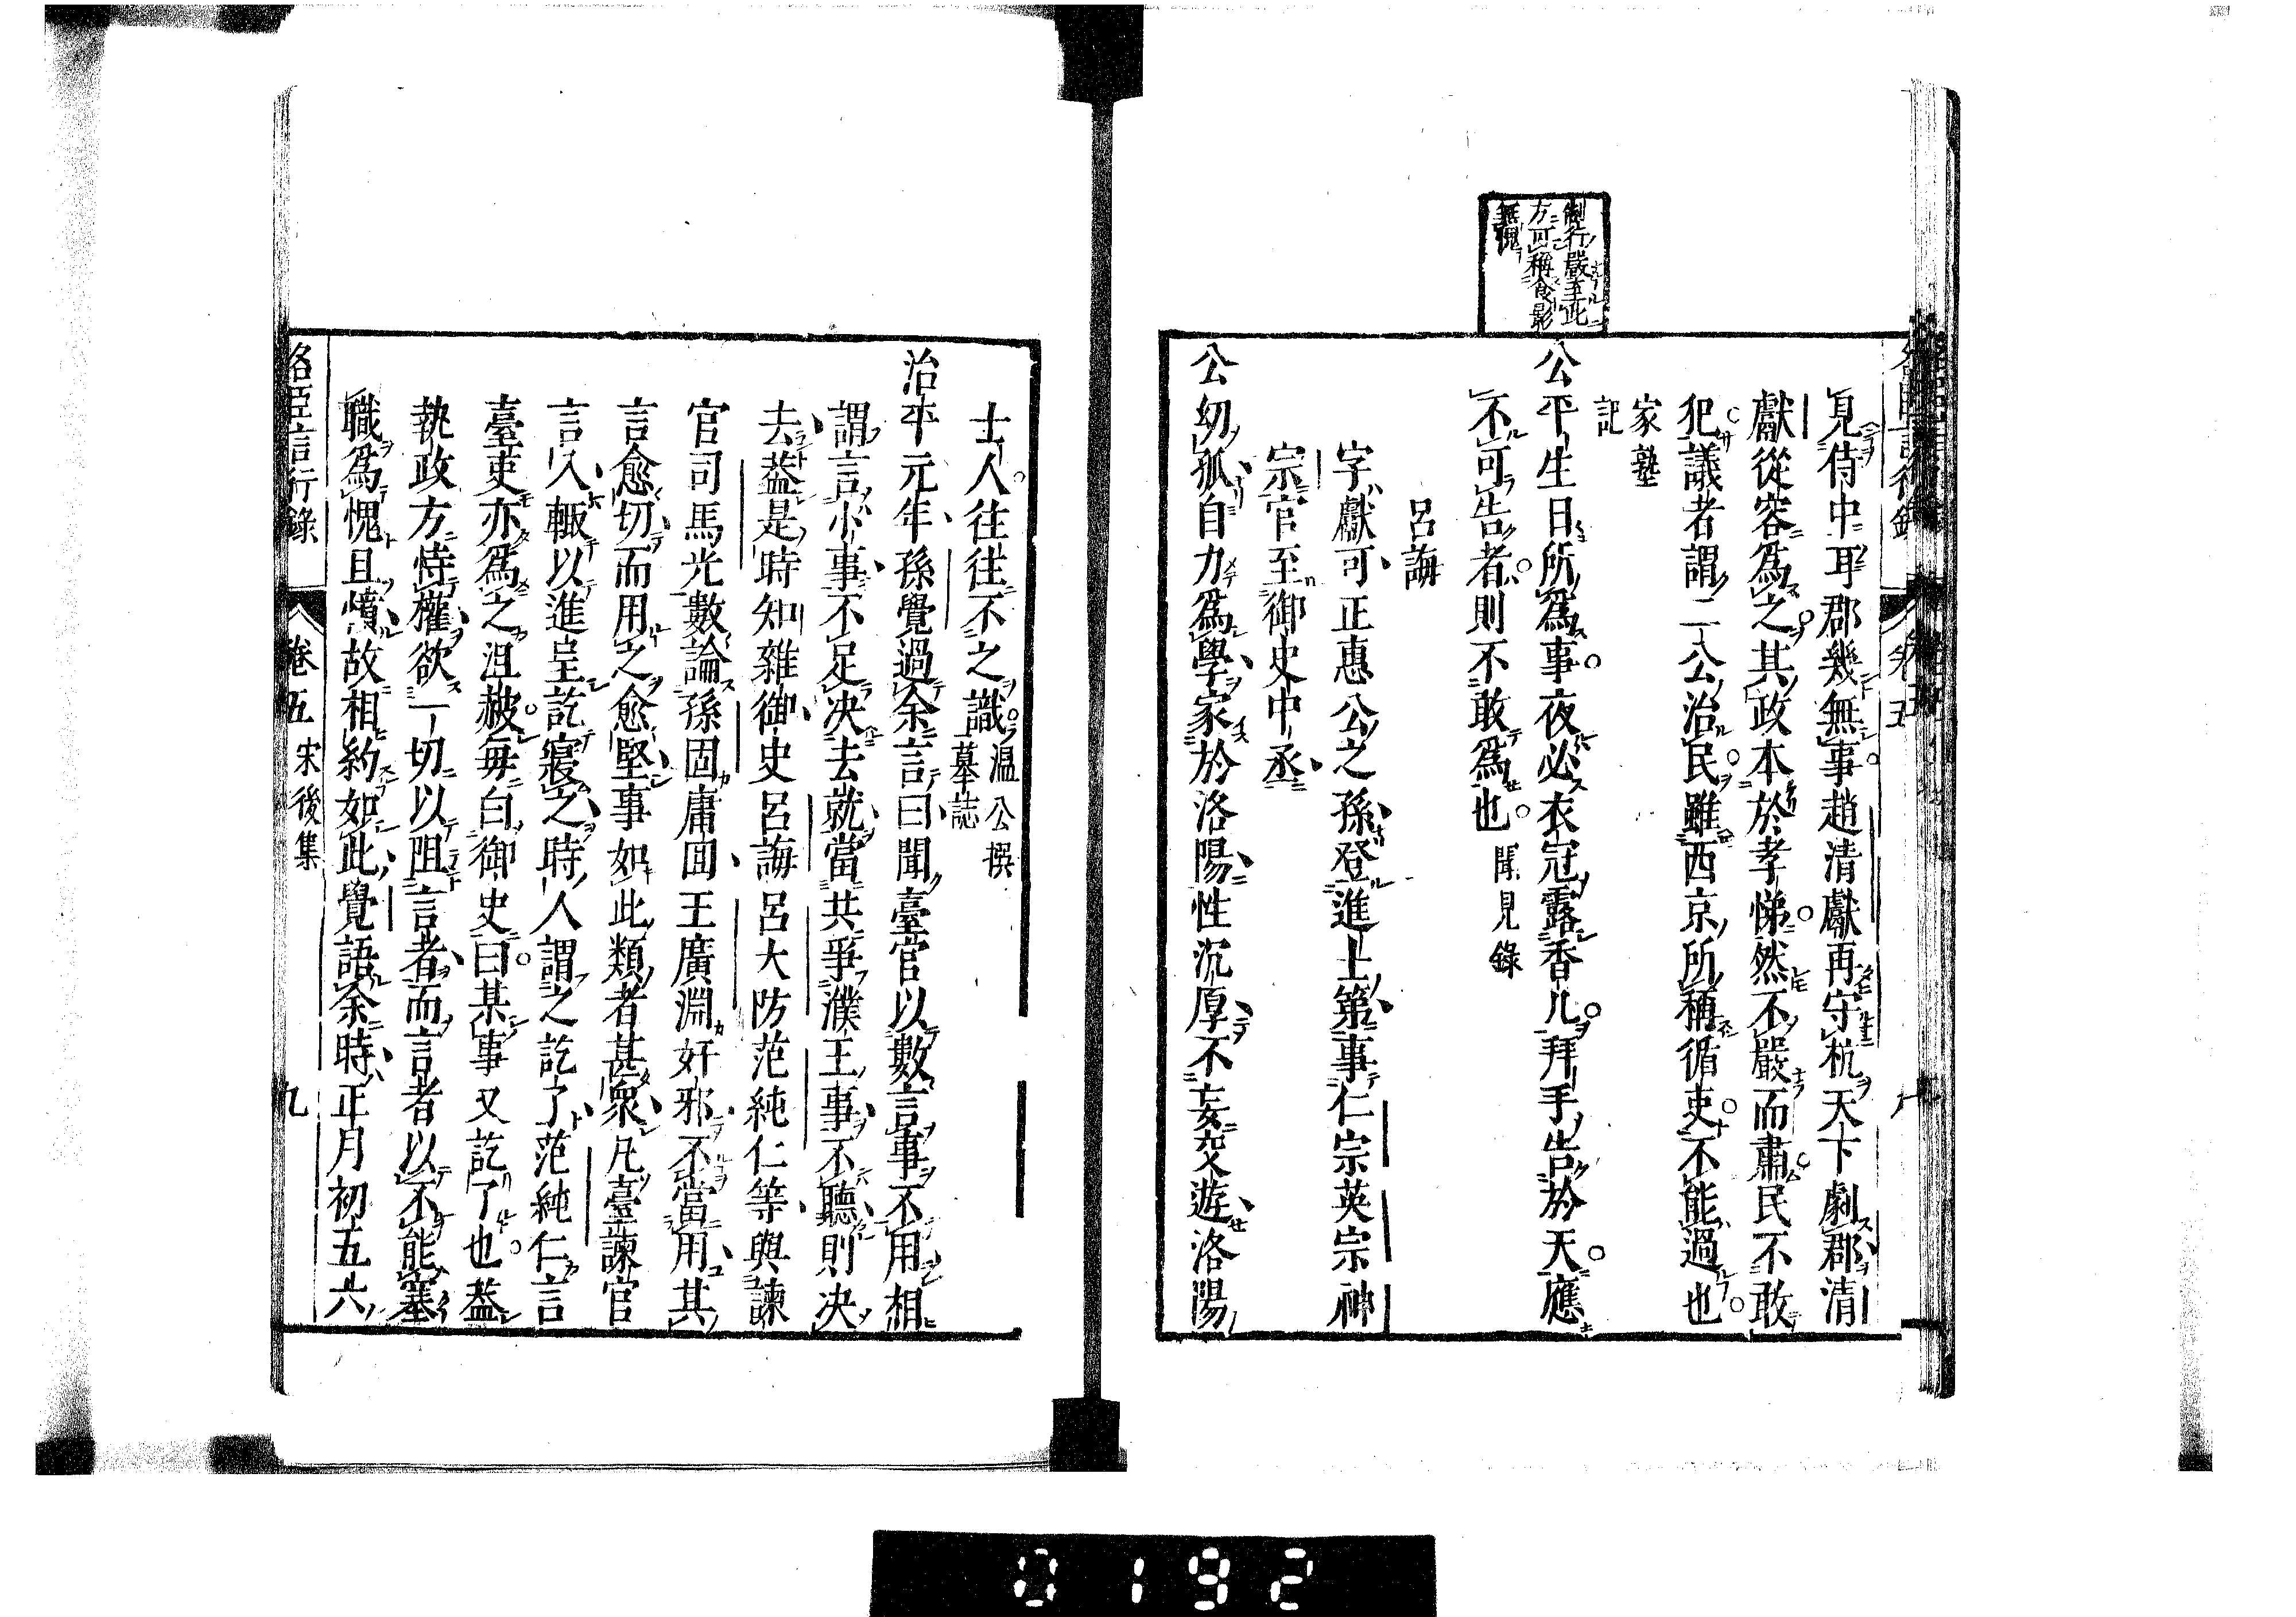 制行嚴至此
方可稱衾影
無愧
見侍中耳郡幾無事趙清獻再守杭天下劇郡清
獻從容爲之其政本於孝悌然不嚴而肅民不敢
犯議者謂二公治民雖西京所稱循吏不能過也
家塾
記
公平生日所爲事夜必衣冠露香几拜手告於天應
不可告者則不敢爲也 聞見錄
呂誨
字獻可正惠公之孫登進士第事仁宗英宗神
宗官至御史中丞
公幼孤自力爲學家於洛陽性沉厚不妄交遊洛陽
士人往往不之識 溫公撰
墓誌
治平元年孫覺過余言曰聞臺官以數言事不用相
謂言小事不足決去就當共爭濮王事不聽則決
去蓋是時知雜御史呂誨呂大防范純仁等與諫
官司馬光數論孫固庸囬王廣淵奸邪不當用其
言愈切而用之愈堅事如此類者甚衆凡臺諫官
言入輙以進呈訖寢之時人謂之訖了范純仁言
臺吏亦爲之沮赧每白御史曰某事又訖了也蓋
執政方恃權欲一切以阻言者而言者以不能塞
職爲愧且憤故相約如此覺語余時正月初五六
名臣言行錄 卷五 宋後集 九